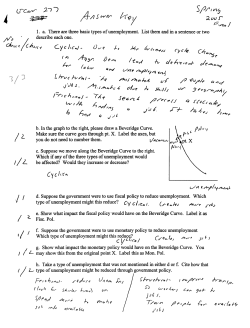 Answer Key
Spring
2005
1. a. There are three basic types of unemployment. List them and in a sentence or two
describe each one.
Cyclical - Due to the business cycle. Change
in Aggr Dem lead to decreased demand
for labor and unemployment.
Structural - The mismatch of people and
jobs. Mismatch due to skills or geography
Frictional - The search process associated
with finding a job. It takes time
to
b. In the graph to the right, please draw a Beveridge Curve.
Make sure the curve goes through pt. X. Label the axes, but
you do not need to number them.
pt X
c. Suppose we move along the Beveridge Curve to the right.
Which if any of the three types of unemployment would
be affected? Would they increase or decrease?
Cyclical
unemployment
d. Suppose the government were to use fiscal policy to reduce unemployment. Which
type of unemployment might this reduce? Cyclical. Creates more jobs
e. Show what impact the fiscal policy would have on the Beveridge Curve. Label it as
Fisc. Pol.
f. Suppose the government were to use monetary policy to reduce unemployment
Which type of unemployment might this reduce?
Cyclical Creates more jobs
g. Show what impact the monetary policy would have on the Beveridge Curve. You
may show this from the original point X. Label this as Mon. Pol.
h. Take a type of unemployment that was not mentioned in either d or f. Cite how that
type of unemployment might be reduced through government policy.
Frictional
Structural
so workers can get to
jobs.
Spend more to make
Train people for available
jobs